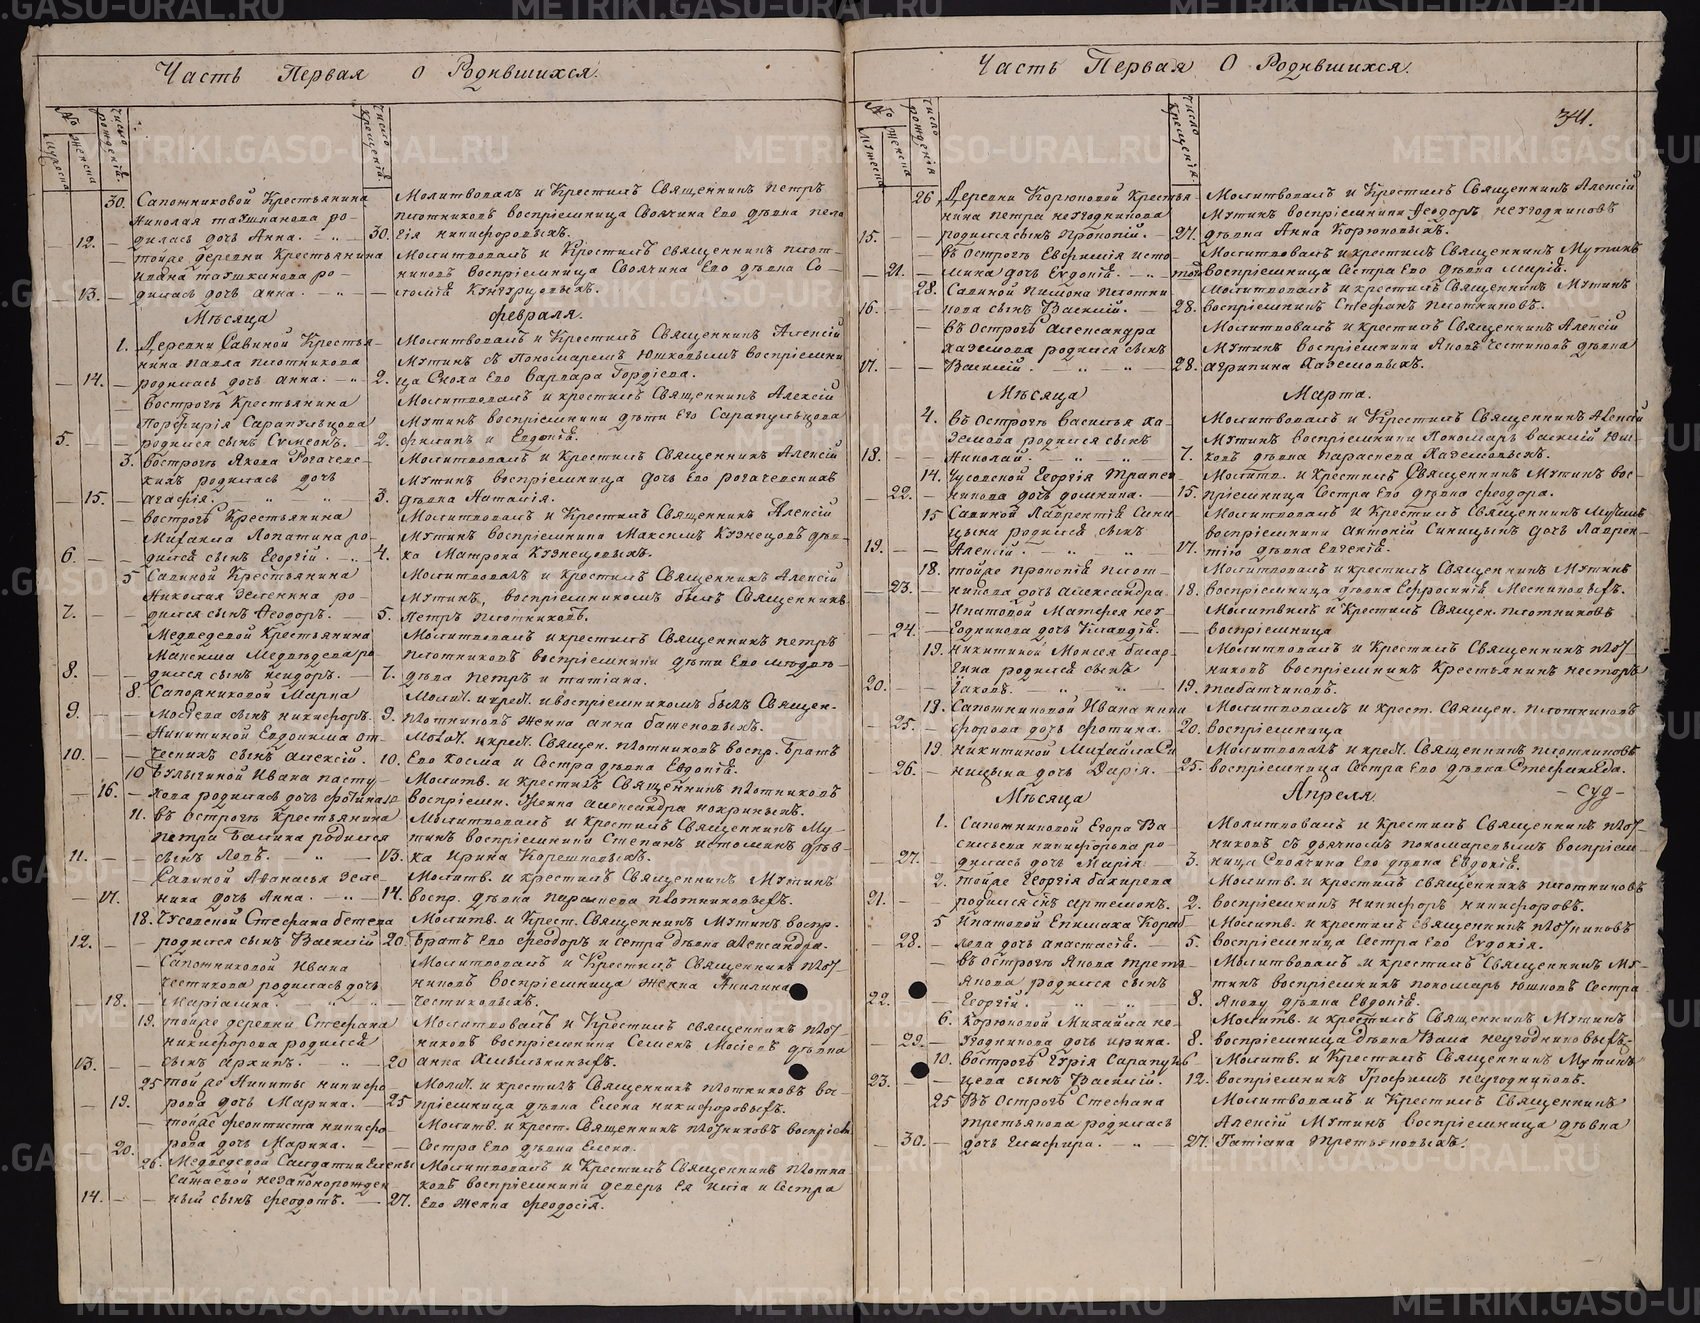 Часть Первая о Родившихся.
№
мужеска
женска
число рожденій.
число крещеній.
30. Сапожниковой Крестьянина
Николая ро-
12. — дилась дочь Анна. — „ — 30.
— тойже деревни Крестьянина
Ивана ро-
13. — дилась дочь анна. „ —
Молитвовалъ и Крестилъ Священникъ Петръ
Плотниковъ воспріемница Своячина Его дѣвка Пела
гія никифоровыхъ.
Молитвовалъ и Крестилъ священникъ плот-
никовъ воспріемница Своячина Его дѣвка Со-
Мѣсяца февраля.
1. Деревни Савиной Крестья-
нина Павла плотникова
14. — родилась дочь анна. — „ 2.
Молитвовалъ и Крестилъ Священникъ Алексій
Мутинъ съ Пономаремъ Юшковымъ воспріемни
ца Сноха Его Варвара Гордіева.
— Вострогѣ Крестьянина
Порфирія Сарапульцова
5. — — родился сынъ Сумеонъ. — 2.
Молитвовалъ и крестилъ Священникъ Алексій
Мутинъ воспріемники дѣти Его Сарапульцова
филипъ и Евдокія.
3. Вострогѣ Якова Рогачевс-
кихъ родилась дочь
15. — агафія. „ „ — 3.
Молитвовалъ и Крестилъ Священникъ Алексій
Мутинъ воспріемница дочь Его рогачевскихъ
дѣвка Наталія.
— Вострогѣ Крестьянина
Михаила Лопатина ро-
6. — — дился сынъ Георгій. — „ 4.
Молитвовалъ и Крестилъ Священникъ Алексій
Мутинъ воспріемники Максимъ Кузнецовъ дѣв-
ка Матрона Кузнецовыхъ.
5 Савиной Крестьянина
Николая Зеленина ро-
7. — — дился сынъ Ѳеодоръ. — 5.
Молитвовалъ и крестилъ Священникъ Алексій
Мутинъ, воспріемникомъ былъ Священникъ
Петръ плотниковъ.
Медведевой Крестьянина
Максима Медвѣдева ро
8. — — дился сынъ исидоръ. — 7.
Молитвовалъ и крестилъ Священникъ петръ
плотниковъ воспріемники дѣти Его медвѣ-
дева петръ и татіана.
8. Сапожниковой Марка
9. — — Мосіева сынъ никифоръ. 9.
Молит. и крест. и воспріемникомъ былъ Священ-
плотниковъ женка анна баженовыхъ.
— Никитиной Евдокима от-
10. — — сынъ алексій. 10.
Молит. и крест. Священ. плотниковъ воспр. братъ
Его косма и Сестра дѣвка Евдокія.
10 Булычиной Ивана пасту-
16. — хова родилась дочь фотина 10
Молитв. и крестилъ Священникъ плотниковъ
воспріемн. женка александра
11. въ острогѣ крестьянина
Петра Балина родился
11. — — сынъ Левъ. — „ — 13.
Молитвовалъ и крестилъ Священникъ Му-
тинъ воспріемники Степанъ истоминъ дѣв-
ка ирина Корешковыхъ.
— Савиной Аѳанасья Зеле-
17. — нина дочь Анна. — „ — 14.
Молитв. и крестилъ Священникъ Мутинъ
воспр. дѣвка парасковья плотниковыхъ.
18. Чусовской Стефана бетева
12. — — родился сынъ Василій 20.
Молитв. и Крест. Священникъ Мутинъ воспр.
братъ Его Ѳеодоръ и сетра дѣвка александра.
— Сапожниковой Ивана
честикова родилась дочь
18. — Маріамна. „ „ —
Молитвовалъ и Крестилъ Священникъ плот-
никовъ воспріемница женка Акилина
Честиковыхъ.
19. тойже деревни Стефана
никифорова родился
13. — — сынъ архипъ. — „ 20
Молитвовалъ и Крестилъ священникъ плот-
никовъ воспріемники Семенъ Мосіевъ дѣвка
анна
25 тойже Никиты никифо
19. — рова дочь Марина. — 25
Молит. и крестилъ Священникъ плотниковъ вос-
пріемница дѣвка Елена никифоровыхъ.
— тойже феоктиста никифо
20. — рова дочь Марина. —
Молитв. и крест. Священникъ плотниковъ воспріем.
Сестра Его дѣвка Елена.
26. Медведевой Салдатки Елены
незаконорожден-
14. — — ный сынъ Ѳеодотъ. — 27.
Молитвовалъ и Крестилъ Священникъ плотни-
ковъ воспріемники деверь Ея и Сестра
Его женка Ѳеодосія.
Часть Первая О Родившихся.
34.
№
Мужеска
женска
число рожденія
число крещенія
26 Деревни Корюковой Кресть
янина петра неугодникова
15. — — родился сынъ Прокопій. — 27.
Молитвовалъ и Крестилъ Священникъ Алексій
Мутинъ воспріемники Ѳеодоръ неугодниковъ
дѣвка Анна Корюковыхъ.
— въ острогѣ Евфимія исто-
21. — мина дочь Евдокія. — „ тойже
Молитвовалъ и крестилъ Священникъ Мутинъ
воспріемница Сестра Его дѣвка марія.
28. Савиной Пимона плотни
16. — — кова сынъ Василій. — 28.
Молитвовалъ и крестилъ Священникъ Мутинъ
воспріемникъ Стефанъ плотниковъ.
— въ острогѣ александра
Хаземова родился сынъ
17. — — Василій. — „ — „ — 28.
Молитвовалъ и крестилъ Священникъ Алексій
Мутинъ воспріемники Яковъ Честиковъ дѣвка
агрипина Хаземовыхъ.
Мѣсяца Марта.
4. въ острогѣ Василья Ха-
земова родился сынъ
18. — — Николай. — „ „ 7.
Молитвовалъ и Крестилъ Священникъ Алексій
Мутинъ воспріемники Пономарь василій Юш-
ковъ дѣвка параскева Хаземовыхъ.
14. Чусовской Георгія
22. — никова дочь домнина. — 15.
Молитв. и Крестилъ Священникъ Мутинъ вос-
пріемница Сестра Его дѣвка Ѳеодора.
15 Савиной Лаврентія Сини
цына родился сынъ
19. — — Алексій. — „ — „ 17.
Молитвовалъ и Крестилъ Священникъ Мутинъ
воспріемники Антоній Синицынъ дочь Лаврен-
тію дѣвка Евгенія.
18. тойже прокопія плот-
23. — никова дочь александра. 18.
Молитвовалъ и крестилъ Священникъ Мутинъ
воспріемница дѣвка Ефросинія
— Ипатовой Матфея неу-
24. — годникова дочь Клавдія. —
Молитв. и Крестилъ Священ. плотниковъ
воспріемница
19. никитиной Моисея
родился сынъ
20. — — Іаковъ. — „ „ — 19.
Молитвовалъ и Крестилъ Священникъ плот-
никовъ воспріемникъ Крестьянинъ несторъ
табатчиковъ.
19. Сапожниковой Ивана ники
25. — форова дочь фотина. 20.
Молитвовалъ и крест. Священ. плотниковъ
воспріемница
19 никитиной Михайла Си
26. — ницына дочь Дарія. — 25.
Молитвовалъ и крест. Священникъ плотниковъ
воспріемница Сестра Его дѣвка Стефанида.
Мѣсяца Апреля. — суд —
1. Сапожниковой Егора Ва-
сильева никифорова ро
27. — дилась дочь Марія 3.
Молитвовалъ и Крестилъ Священникъ плот-
никовъ съ дьячкомъ пономаревымъ воспріем-
ница Своячина Его дѣвка Евдокія.
2. тойже Георгія бахирева
21. — — родился снъ артемонъ. 2.
Молитв. и крестилъ священникъ плотниковъ
воспріемникъ никифоръ никифоровъ.
5 Ипатовой Епимаха Кораб
28. — лева дочь анастасія. — 5.
Молитв. и крестилъ Священникъ плотниковъ
воспріемница Сестра Его Евдокія.
— въ Острогѣ Якова трет-
якова родился сынъ
22. — — Георгій. „ „ — 8.
Молитвовалъ и крестилъ Священникъ Му-
тинъ воспріемникъ пономарь юшковъ Сестра
Якову дѣвка Евдокія.
6. Корюковой Михайла не-
29. — угодникова дочь ирина. 8.
Молитв. и крестилъ Священникъ Мутинъ
воспріемница дѣвка Васа неугодниковыхъ.
10. Вострогѣ Гурія Сарапуль
23. — — цева сынъ Василій. — 12.
Молитв. и Крестилъ Священникъ Мутинъ
воспріемникъ Трофимъ неугодниковъ.
25 Въ Острогѣ Стефана
третьякова родилась
30. — дочь Глафира. — „ — 27.
Молитвовалъ и Крестилъ Священникъ
Алексій Мутинъ воспріемница дѣвка
Татіана третьяковыхъ.
METRIKI.GASO-URAL.RU